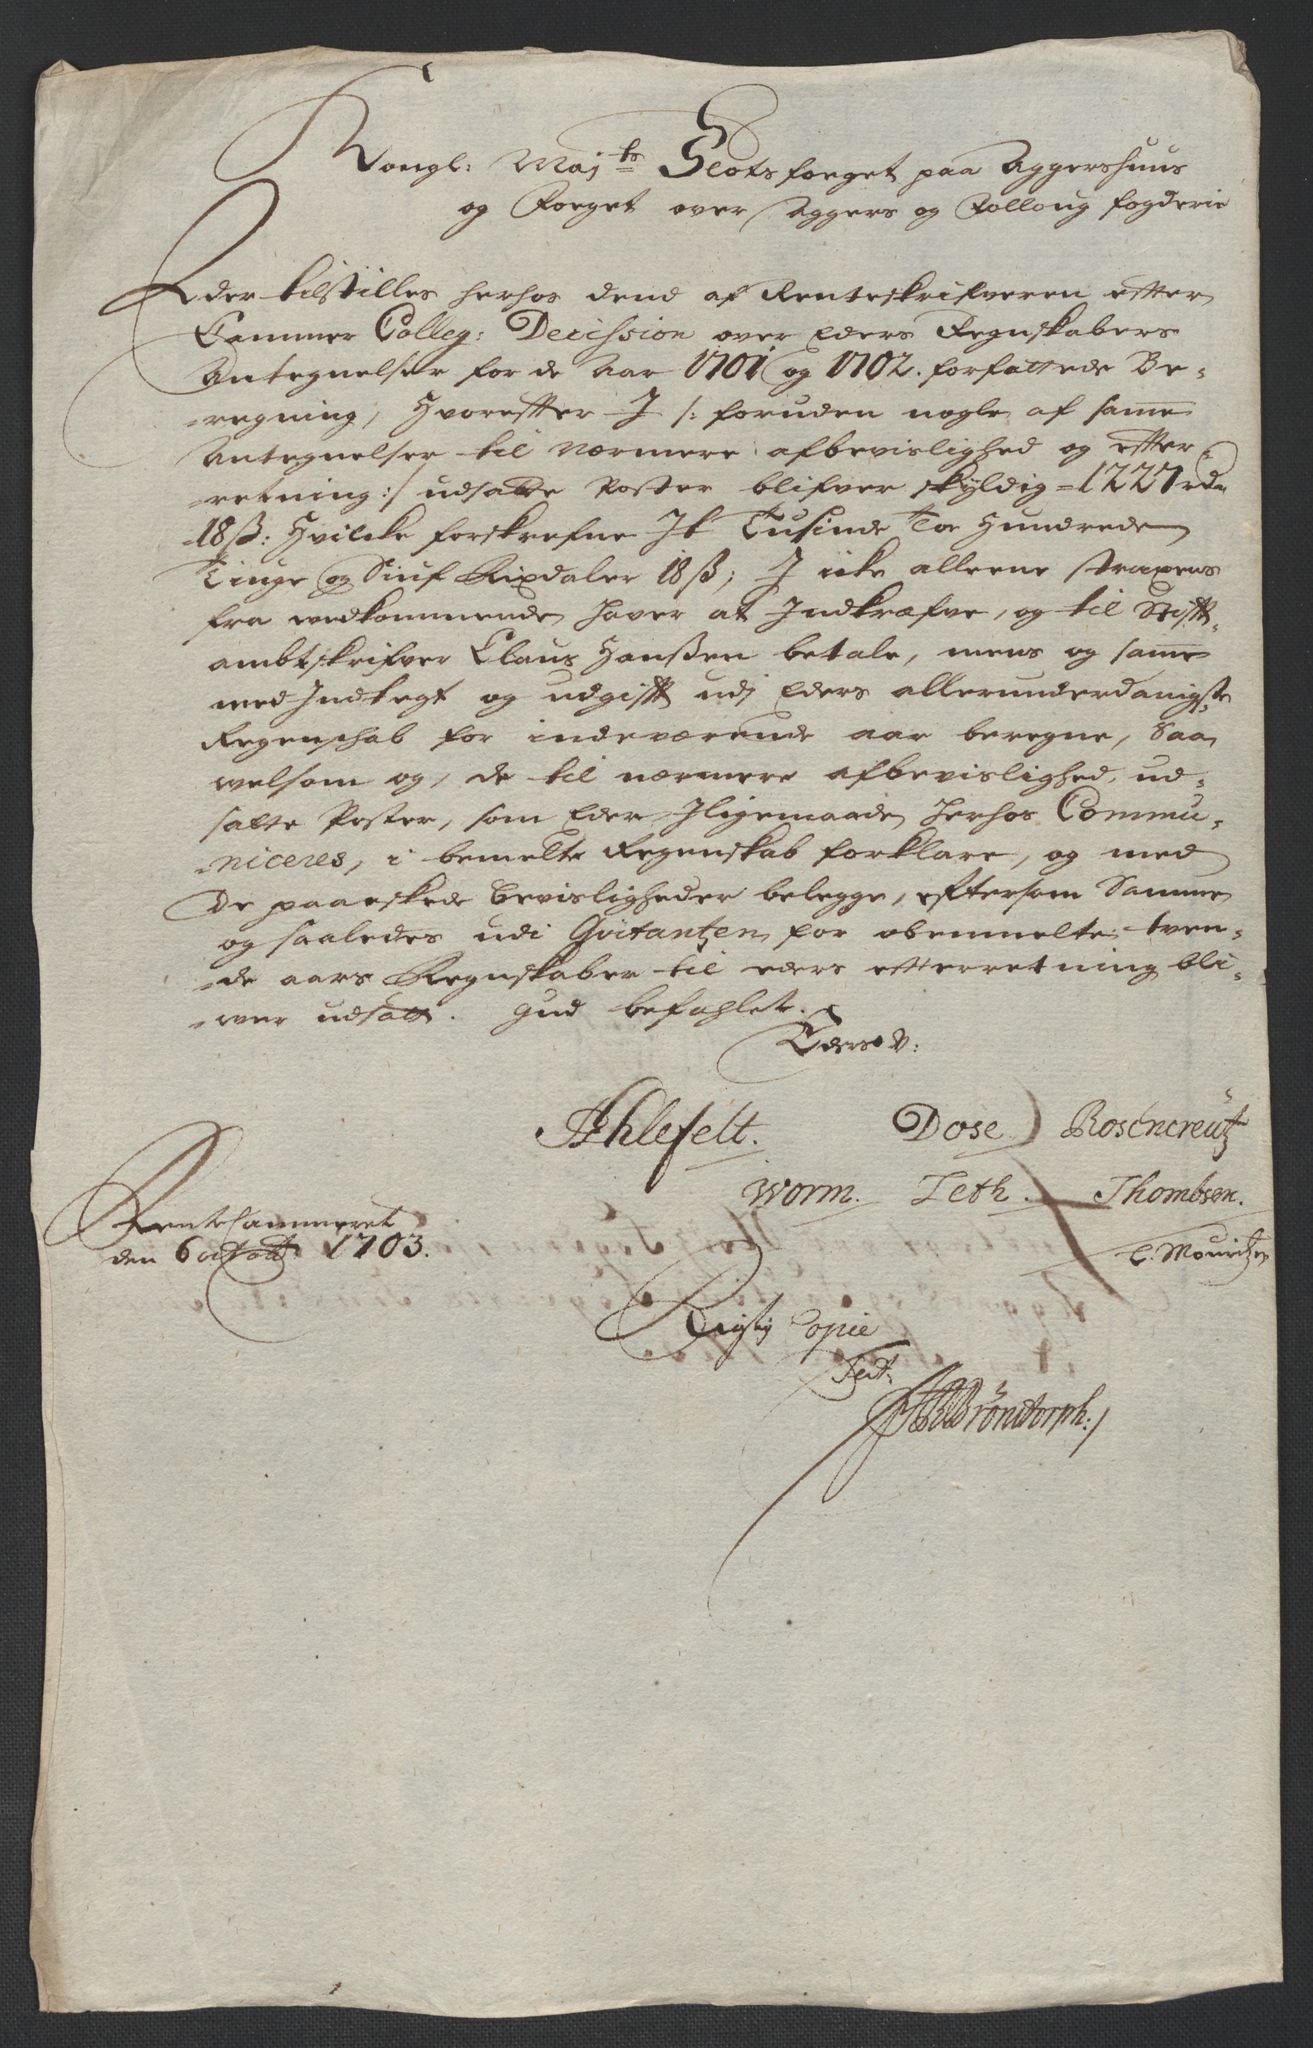 Kongl: Maj:ts Slotsfoeget paa Aggershuus
og Foeget over Aggers og Folloug fogderie
Eder tilstilles herhos dend af Renteskrifveren efter
Cammer Colleg: Decission over Eders Regnskabers
Antegnelser for de Aar 1701 og 1702. forfattede Be-
regning, Hvorefter I /: foruden nogle af samme
Antegnelser til nærmere afbevislighed og efter-
retning :/ udsatte Poster blifver skyldig = 1227 rdr
18 ß: Hvilcke forskrefne It Tusinde To Hundrede
Tiuge og Siuf Rixdaler 18 ß; I icke alleene straxens
fra wedkommende hafver at Indkræfve, og til Stift-
ambtskrifver Claus Hanßen betale, mens og samme
med Indtegt og udgift udj Eders allerunderdanigste
Regenschab for indeværende aar beregne, Saa
welsom og, de til nærmere afbevislighed, ud-
satte Poster, som Eder Iligemaade herhos Commu-
niceres, i bemelte Regenskab forklare, og med
De paaeskede bevisligheder belegge, eftersom Samme
og saaledes udi Qvitantzen for obenmelte tven-
de aars Regnskaber til eders efterretning bli-
wer udsatt. Gud befahlet.
Eders V:
Ahlefelt. Dose Rosencreütz
Worm. Leth. Thombsen.
Rente Cammeret
den 6 1703. C. Mouridzen
Rigtig Copie
Test:
Bröndorph:/